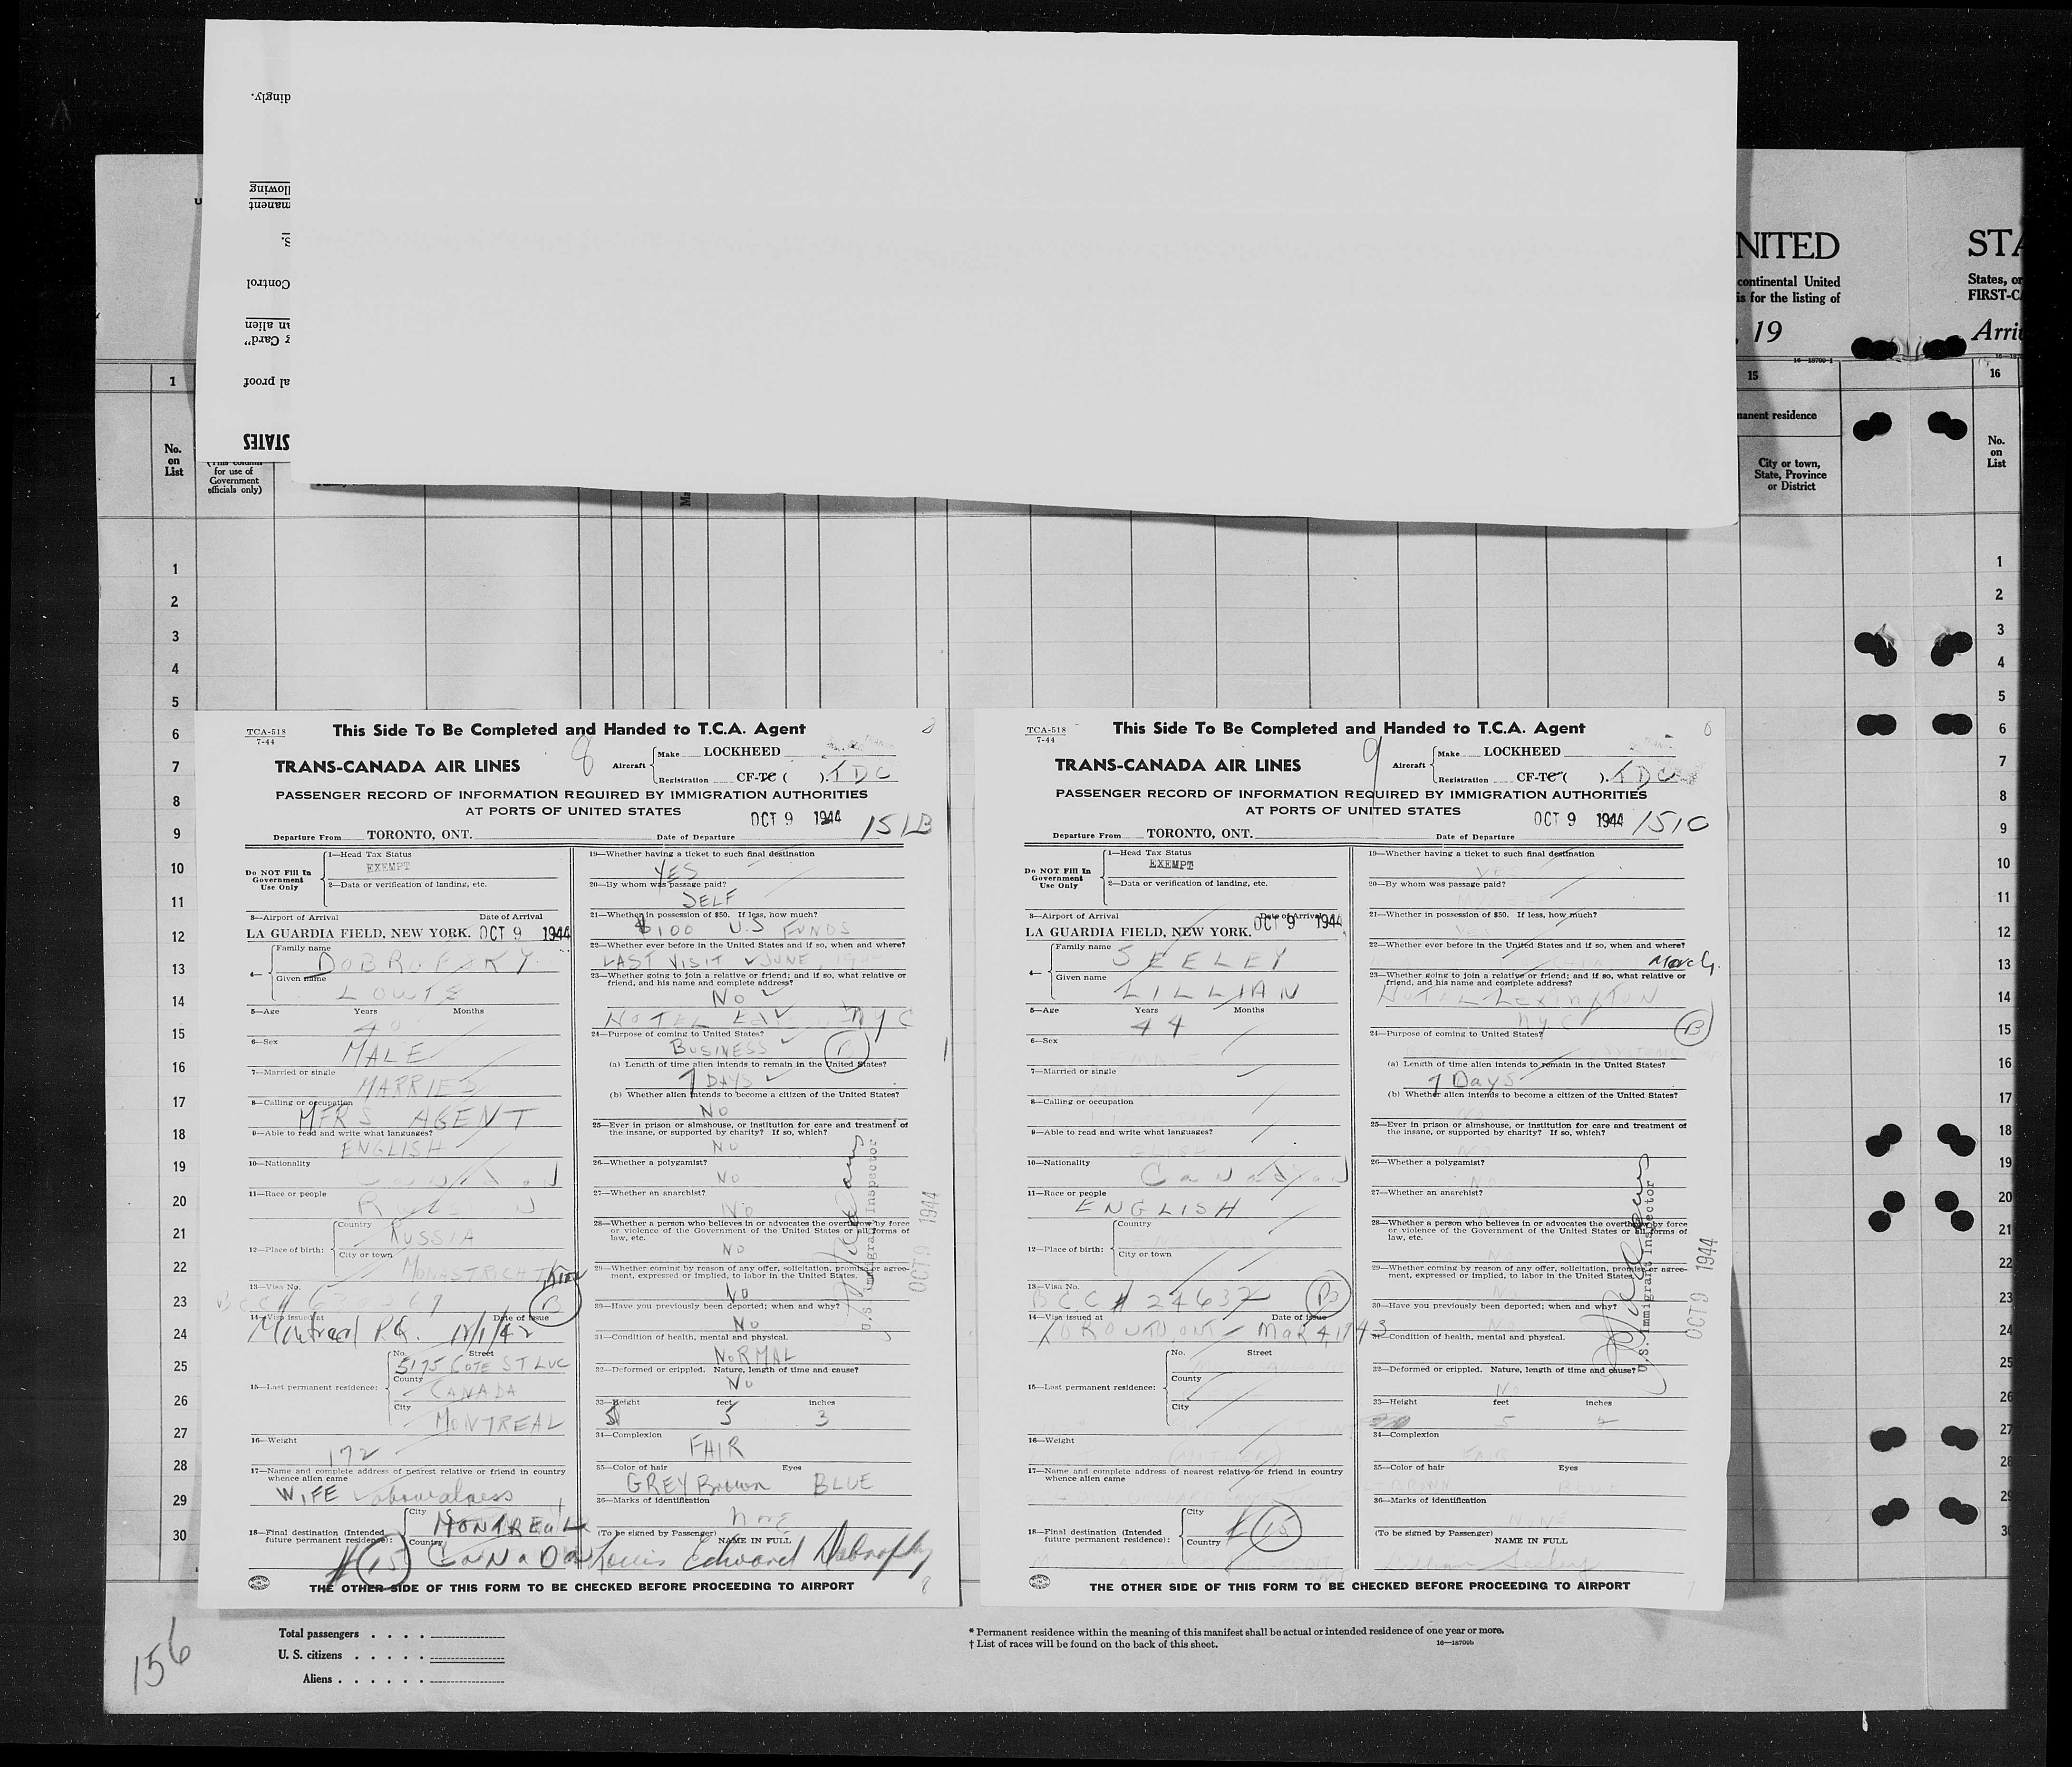 dingly.
llowing
manent
S.
Control
an alien
g Card"
al proof
STATES
NITED
STA
continental United
is for the listing of
States, or
FIRST-C
, 19
Arri
16—18709-1
1
15
16
manent residence
No.
on
List
(This column
for use of
Government
officials only)
City or town,
State, Province
or District
No.
on
List
1
2
3
4
5
6
7
8
9
10
11
12
13
14
15
16
17
18
19
20
21
22
23
24
25
26
27
28
29
30
TCA-518
7-44
This Side To Be Completed and Handed to T.C.A. Agent
8
TRANS-CANADA AIR LINES
Aircraft
Make LOCKHEED
Registration CF-TC ( ). TDC
PASSENGER RECORD OF INFORMATION REQUIRED BY IMMIGRATION AUTHORITIES
AT PORTS OF UNITED STATES
OCT 9 1944
151B
Departure From TORONTO, ONT. Date of Departure
Do NOT Fill In
Government
Use Only
1—Head Tax Status
EXEMPT
2—Data or verification of landing, etc.
3—Airport of Arrival Date of Arrival
LA GUARDIA FIELD, NEW YORK. OCT 9 1944
4—
Family name
DOBROFSKY
Given name
LOUIS
5—Age Years Months
40
6—Sex
MALE
7—Married or single
MARRIED
8—Calling or occupation
MFRS AGENT
9—Able to read and write what languages?
ENGLISH
10—Nationality
Canadian
11—Race or people
12—Place of birth:
Country
RUSSIA
City or town
13—Visa No.
14—Visa issued at Date of issue
Montreal P.Q. 12/1/42
15—Last permanent residence:
No. Street
5175 COTE ST LUC
County
CANADA
City
MONTREAL
16—Weight
172
17—Name and complete address of nearest relative or friend in country
whence alien came
WIFE
18—Final destination (Intended
future permanent residence):
City
MONTREAL
Country
CANADA
#15
19—Whether having a ticket to such final destination
YES
20—By whom was passage paid?
SELF
21—Whether in possession of $50. If less, how much?
$100 U.S FUNDS
22—Whether ever before in the United States and if so, when and where?
LAST VISIT JUNE,
23—Whether going to join a relative or friend; and if so, what relative or
friend, and his name and complete address?
NO
HOTEL NYC
24—Purpose of coming to United States?
BUSINESS
(a) Length of time alien intends to remain in the United States?
7 DAYS
(b) Whether alien intends to become a citizen of the United States?
NO
25—Ever in prison or almshouse, or institution for care and treatment of
the insane, or supported by charity? If so, which?
NO
26—Whether a polygamist?
NO
27—Whether an anarchist?
NO
28—Whether a person who believes in or advocates the overthrow by force
or violence of the Government of the United States or all forms of
law, etc.
NO
29—Whether coming by reason of any offer, solicitation, promise or agree-
ment, expressed or implied, to labor in the United States.
NO
30—Have you previously been deported; when and why?
NO
31—Condition of health, mental and physical.
NORMAL
32—Deformed or crippled. Nature, length of time and cause?
NO
33—Height feet inches
5 3
34—Complexion
FAIR
35—Color of hair Eyes
GREY Brown BLUE
36—Marks of identification
none
(To be signed by Passenger) NAME IN FULL
Louis Edward Dobrofsky
U.S. Immigrant Inspector
OCT 9 1944
THE OTHER SIDE OF THIS FORM TO BE CHECKED BEFORE PROCEEDING TO AIRPORT
TCA-518
7-44
This Side To Be Completed and Handed to T.C.A. Agent
9
TRANS-CANADA AIR LINES
Aircraft
Make LOCKHEED
Registration CF-TC ( ). TDC
PASSENGER RECORD OF INFORMATION REQUIRED BY IMMIGRATION AUTHORITIES
AT PORTS OF UNITED STATES
OCT 9 1944
151C
Departure From TORONTO, ONT. Date of Departure
Do NOT Fill In
Government
Use Only
1—Head Tax Status
EXEMPT
2—Data or verification of landing, etc.
3—Airport of Arrival Date of Arrival
LA GUARDIA FIELD, NEW YORK. OCT 9 1944
4—
Family name
SEELEY
Given name
LILLIAN
5—Age Years Months
44
6—Sex
FEMALE
7—Married or single
8—Calling or occupation
9—Able to read and write what languages?
10—Nationality
Canadian
11—Race or people
ENGLISH
12—Place of birth:
Country
City or town
13—Visa No.
BCC # 24632
14—Visa issued at Date of issue
TORONTO, ONT Mar 4, 1943
15—Last permanent residence:
No. Street
County
City
16—Weight
(MOTHER)
17—Name and complete address of nearest relative or friend in country
whence alien came
18—Final destination (Intended
future permanent residence):
City
Country
#15
19—Whether having a ticket to such final destination
YES
20—By whom was passage paid?
21—Whether in possession of $50. If less, how much?
YES
22—Whether ever before in the United States and if so, when and where?
March
23—Whether going to join a relative or friend; and if so, what relative or
friend, and his name and complete address?
HOTEL Lexington
NYC
B
24—Purpose of coming to United States?
(a) Length of time alien intends to remain in the United States?
7 Days
(b) Whether alien intends to become a citizen of the United States?
NO
25—Ever in prison or almshouse, or institution for care and treatment of
the insane, or supported by charity? If so, which?
NO
26—Whether a polygamist?
NO
27—Whether an anarchist?
28—Whether a person who believes in or advocates the overthrow by force
or violence of the Government of the United States or all forms of
law, etc.
NO
29—Whether coming by reason of any offer, solicitation, promise or agree-
ment, expressed or implied, to labor in the United States.
NO
30—Have you previously been deported; when and why?
NO
31—Condition of health, mental and physical.
32—Deformed or crippled. Nature, length of time and cause?
NO
33—Height feet inches
5 2
34—Complexion
FAIR
35—Color of hair Eyes
BROWN BLUE
36—Marks of identification
NONE
(To be signed by Passenger) NAME IN FULL
Lillian Seeley
U.S. Immigrant Inspector
OCT 9 1944
THE OTHER SIDE OF THIS FORM TO BE CHECKED BEFORE PROCEEDING TO AIRPORT
1
2
3
4
5
6
7
8
9
10
11
12
13
14
15
16
17
18
19
20
21
22
23
24
25
26
27
28
29
30
Total passengers
U. S. citizens
Aliens
* Permanent residence within the meaning of this manifest shall be actual or intended residence of one year or more.
† List of races will be found on the back of this sheet.
16—18709b
156